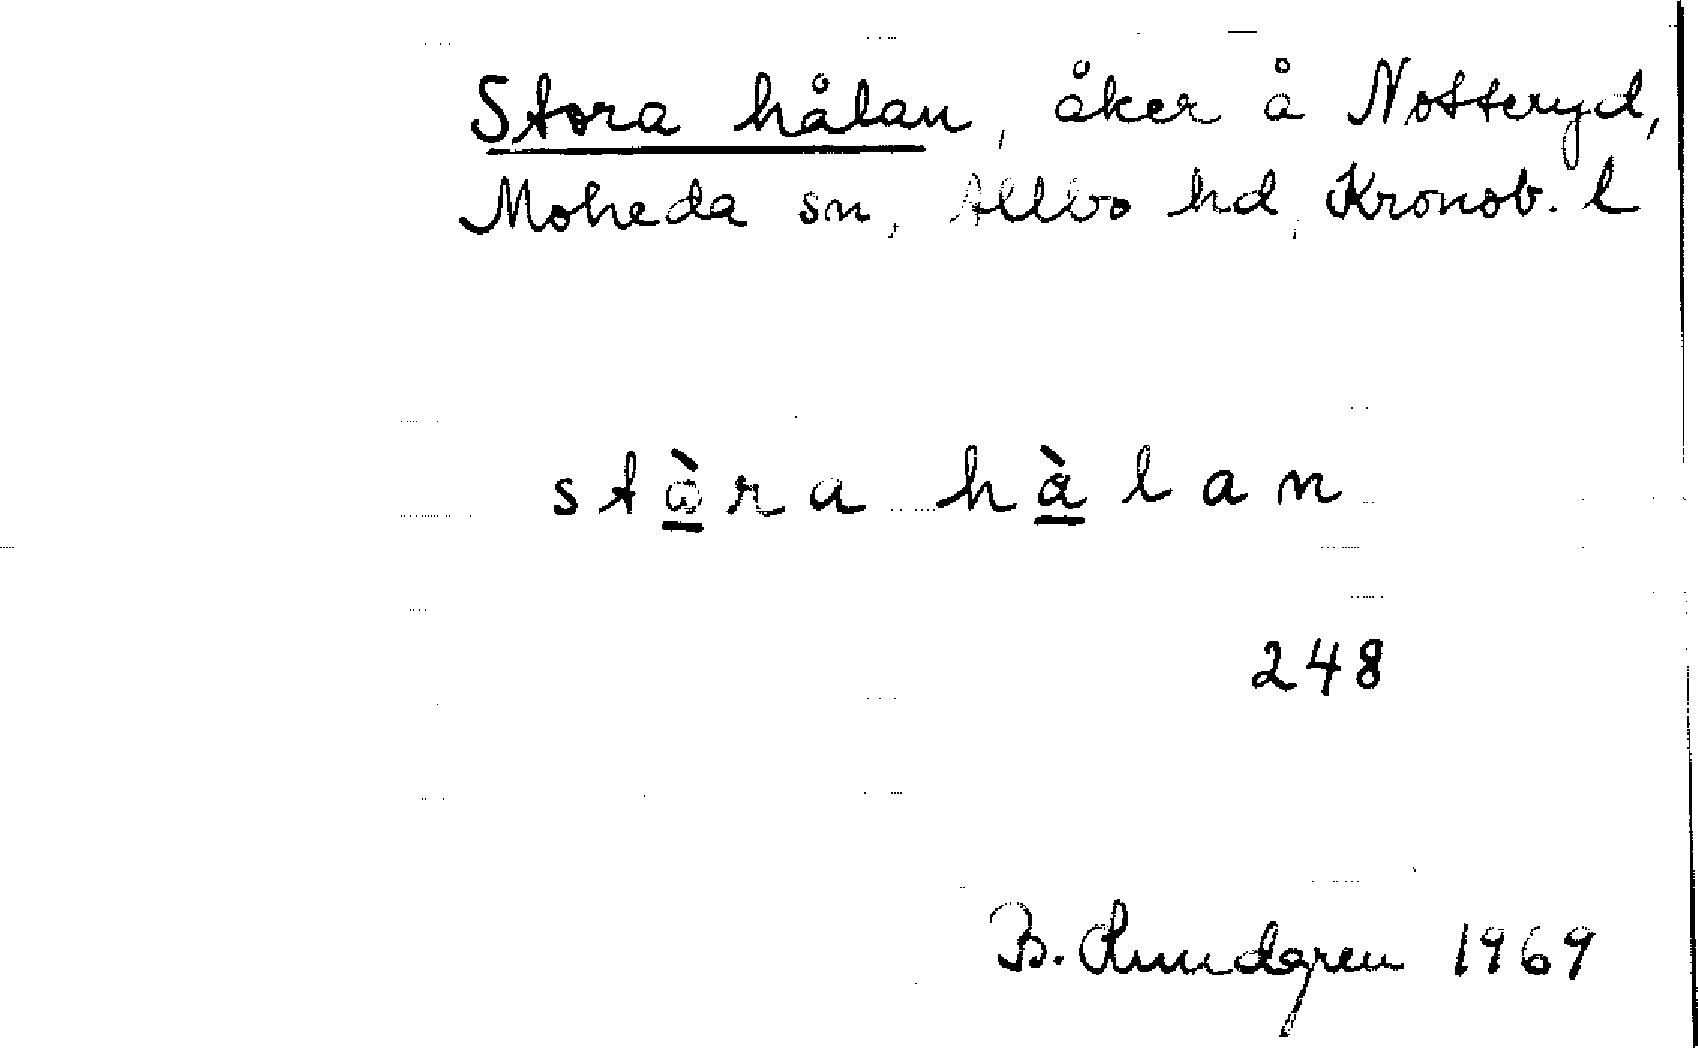 Stora hålan, åker å Notteryd,
Moheda sn, Allbo hd, Kronob. l
stò̲ra hà̲lan
248
B. Rundgren 1969